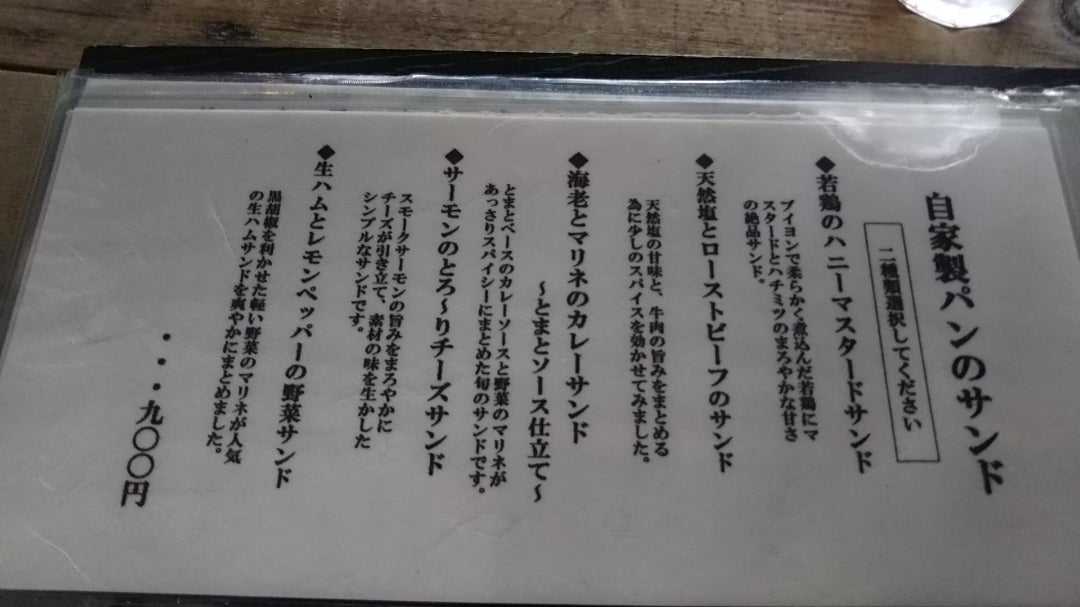 自家製パンのサンド
二種類選択してください
◆若鶏のハニーマスタードサンド
ブイヨンで柔らかく煮込んだ若鶏にマ
スタードとハチミツのまろやかな甘さ
の絶品サンド。
◆天然塩とローストビーフのサンド
天然塩の甘味と、牛肉の旨みをまとめる
為に少しのスパイスを効かせてみました。
◆海老とマリネのカレーサンド
～とまとソース仕立て～
とまとベースのカレーソースと野菜のマリネが
あっさりスパイシーにまとめた旬のサンドです。
◆サーモンのとろ～りチーズサンド
スモークサーモンの旨みをまろやかに
チーズが引き立て、素材の味を生かした
シンプルなサンドです。
◆生ハムとレモンペッパーの野菜サンド
黒胡椒を利かせた軽い野菜のマリネが人気
の生ハムサンドを爽やかにまとめました。
・・・九〇〇円